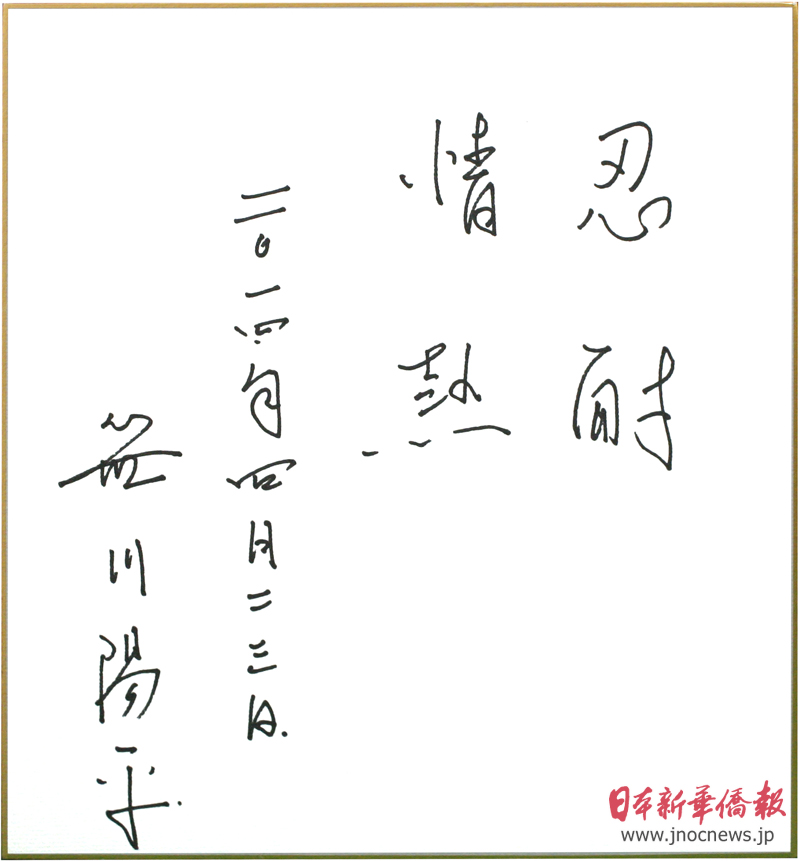 忍耐
情熱
二〇一四年四月二三日.
笹川陽平.
日本新華僑報
www.jnocnews.jp